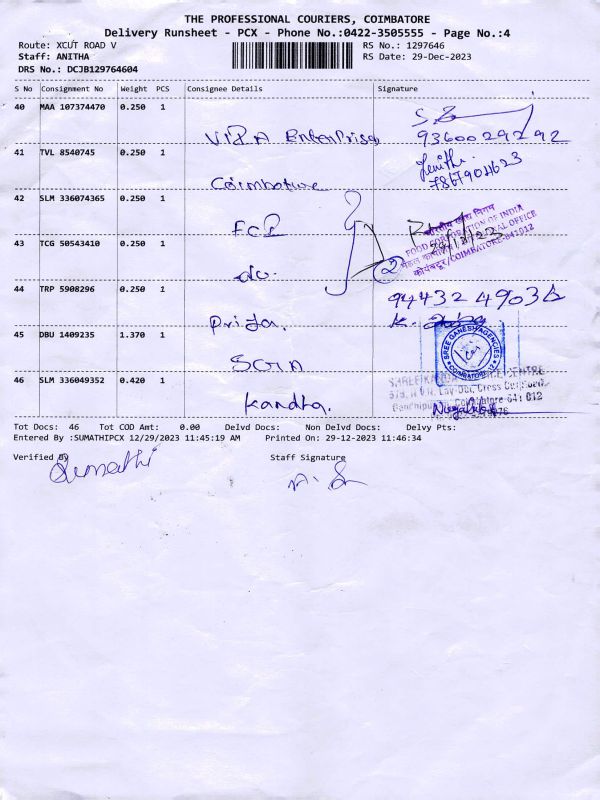 THE PROFESSIONAL COURIERS, COIMBATORE
Delivery Runsheet - PCX - Phone No.:0422-3505555 - Page No.:4
Route: XCUT ROAD V RS No.: 1297646
Staff: ANITHA RS Date: 29-Dec-2023
DRS No.: DCJB129764604
S No Consignment No Weight PCS Consignee Details Signature
40 MAA 107374470 0.250 1
Enterprises 93600292 92
41 TVL 8540745 0.250 1
Coimbatore 7867904623
42 SLM 336074365 0.250 1
FCI
भारतीय खाद्य निगम
FOOD CORPORATION OF INDIA
कोयंबटूर/COIMBATORE-641012
43 TCG 50543410 0.250 1
do. 2
44 TRP 5908296 0.250 1
Priya. 944324903
45 DBU 1409235 1.370 1
SGA
SREE GANESH AGENCIES
COIMBATORE-12
46 SLM 336049352 0.420 1
Kandha.
Cross Cut Road,
Gandhipuram, Coimbatore-641 012
Tot Docs: 46 Tot COD Amt: 0.00 Delvd Docs: Non Delvd Docs: Delvy Pts:
Entered By :SUMATHIPCX 12/29/2023 11:45:19 AM Printed On: 29-12-2023 11:46:34
Verified By Staff Signature
Sumathi